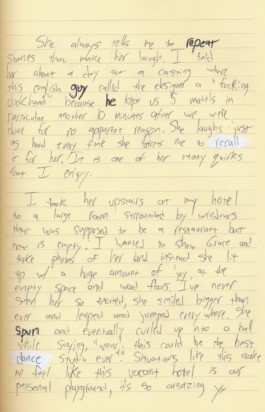 She always tells me to repeat
stories that make her laugh. I told
her about a day at a casting where
this english guy called the designer a "fucking
dickhead" because he kept us 5 models in
particular another 10 minutes after we were
done for no apparent reason. She laughs just
as hard every time she takes me to recall
it for her. It is one of her many quirks
that I enjoy.
I took her upstairs at my hotel
to a large room surrounded by windows
that was supposed to be a restaurant but
now is empty. I wanted to show Grace and
take photos of her and instead she lit
up w/ a huge amount of joy at the
empty space and wood floors. I've never
seen her so excited, she smiled bigger than
ever and leaped and jumped everywhere. She
spun and eventually curled up into a ball
while saying, "wow, this could be the best
dance studio ever!" Situations like this make
me feel like this vacant hotel is our
personal playground, it's so amazing